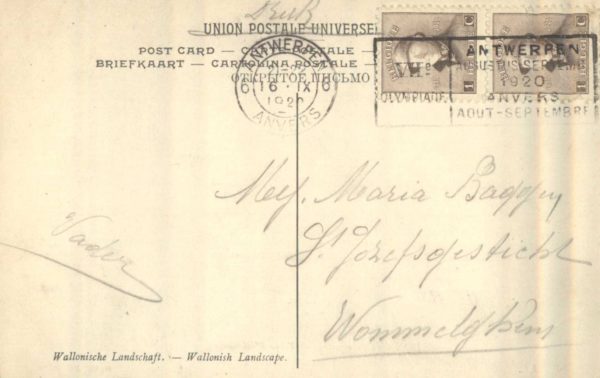 Druk
UNION POSTALE UNIVERSE
POST CARD — CARTE POSTALE
BRIEFKAART — CARTOLINA POSTALE
ОТКРЫТОЕ ПИСЬМО
ANTWERPEN
6 16 · IX 6
1920
ANVERS
VIIe
OLYMPIADE
ANTWERPEN
AUGUSTUS-SEPTEMB
1920
ANVERS
AOUT-SEPTEMBRE
1 C
Mej. Maria Baggen
St Jozefsgesticht
Wommelghem
Vader
Wallonische Landschaft. — Wallonish Landscape.